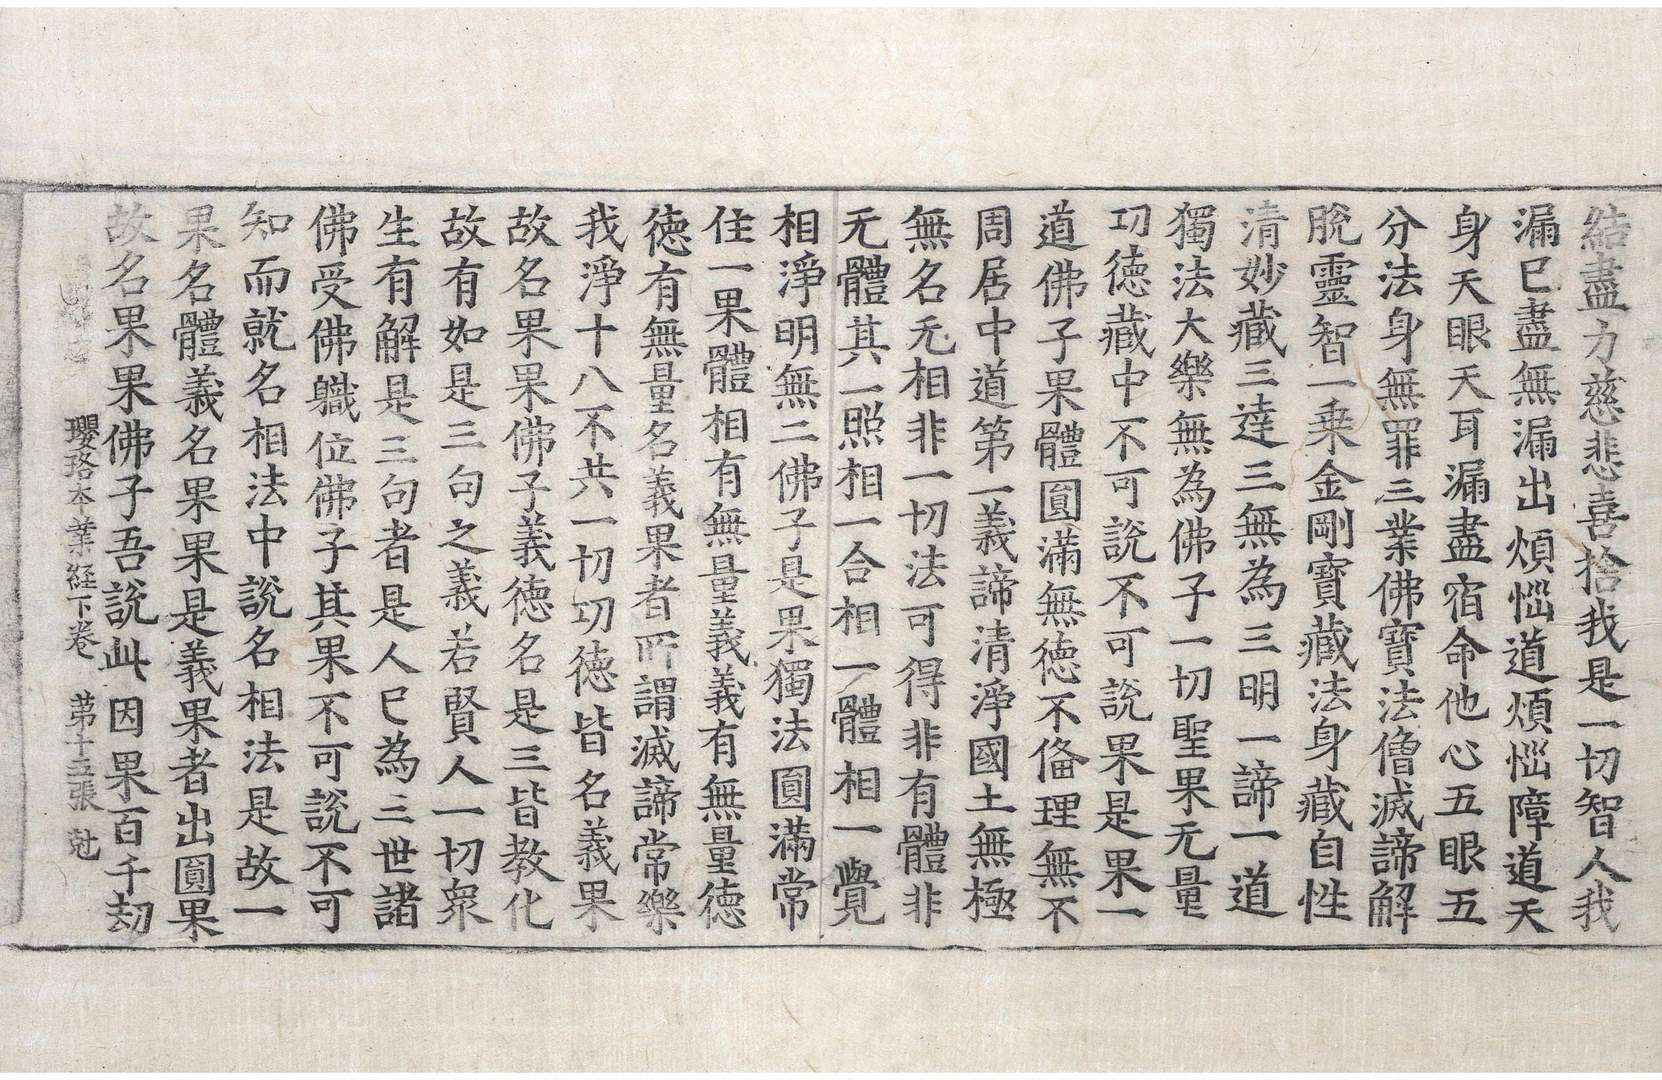 結盡力慈悲喜捨我是一切智人我
漏已盡無漏出煩惱道煩惱障道天
身天眼天耳漏盡宿命他心五眼五
分法身無罪三業佛寶法僧滅諦解
脫靈智一乗金剛寶藏法身藏自性
清妙藏三達三無為三明一諦一道
獨法大樂無為佛子一切聖果无量
功德藏中不可說不可說果是果一
道佛子果體圓滿無德不俻理無不
周居中道第一義諦清淨國土無極
無名无相非一切法可得非有體非
无體其一照相一合相一體相一覺
相淨明無二佛子是果獨法圓滿常
住一果體相有無量義義有無量德
德有無量名義果者所謂滅諦常樂
我淨十八不共一切功德皆名義果
故名果果佛子義德名是三皆教化
故有如是三句之義若賢人一切衆
生有解是三句者是人已為三世諸
佛受佛職位佛子其果不可說不可
知而就名相法中說名相法是故一
果名體義名果果是義果者出圓果
故名果果佛子吾說此因果百千劫
瓔珞本業経下卷 第十五張 尅